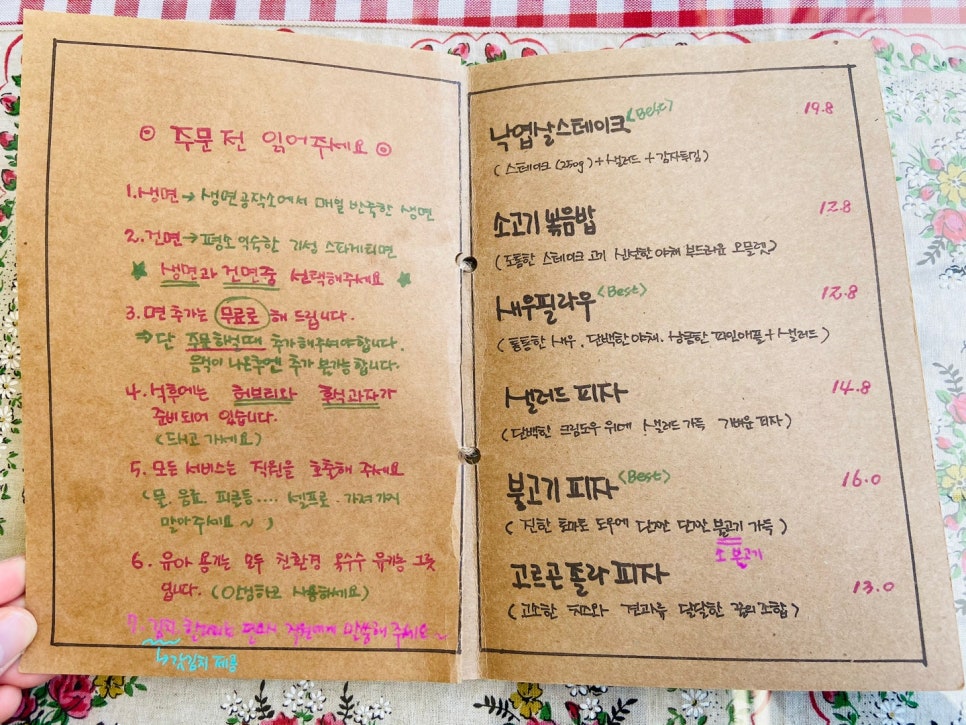 ◎ 주문 전 읽어주세요 ◎
1. 생면 → 생면공작소에서 매일 반죽한 생면
2. 건면 → 평소 익숙한 기성 스파게티면
★ 생면과 건면중 선택해주세요 ★
3. 면 추가는 무료로 해 드립니다.
⇒ 단 주문하실때 추가해주셔야합니다.
음식이 나온후엔 추가 불가능합니다.
4. 식후에는 허브티와 후식과자가
준비되어 있습니다.
(드시고 가세요)
5. 모든 서비스는 직원을 호출해 주세요
(물, 음료, 피클등.... 셀프로 가져가지
말아주세요 ~ )
6. 유아 용기는 모두 친환경 옥수수 유기농 그릇
입니다. (안심하고 사용하세요)
7. 김치 필요하신분은 직원에게 말씀해 주세요 ~
↳ 갓김치 제공
낙엽살스테이크 <Best> 19.8
(스테이크(250g) + 샐러드 + 감자튀김)
소고기 볶음밥 12.8
(도톰한 스테이크 고기 신선한 야채 부드러운 오믈렛)
새우필라우 <Best> 12.8
(통통한 새우, 담백한 야채, 상큼한 파인애플 + 샐러드)
샐러드 피자 14.8
(담백한 크림도우 위에 샐러드 가득 가벼운 피자)
불고기 피자 <Best> 16.0
(진한 토마토 도우에 단짠 단짠 불고기 가득)
소 불고기
고르곤졸라 피자 13.0
(고소한 치즈와 견과류 달달한 꿀의 조합)